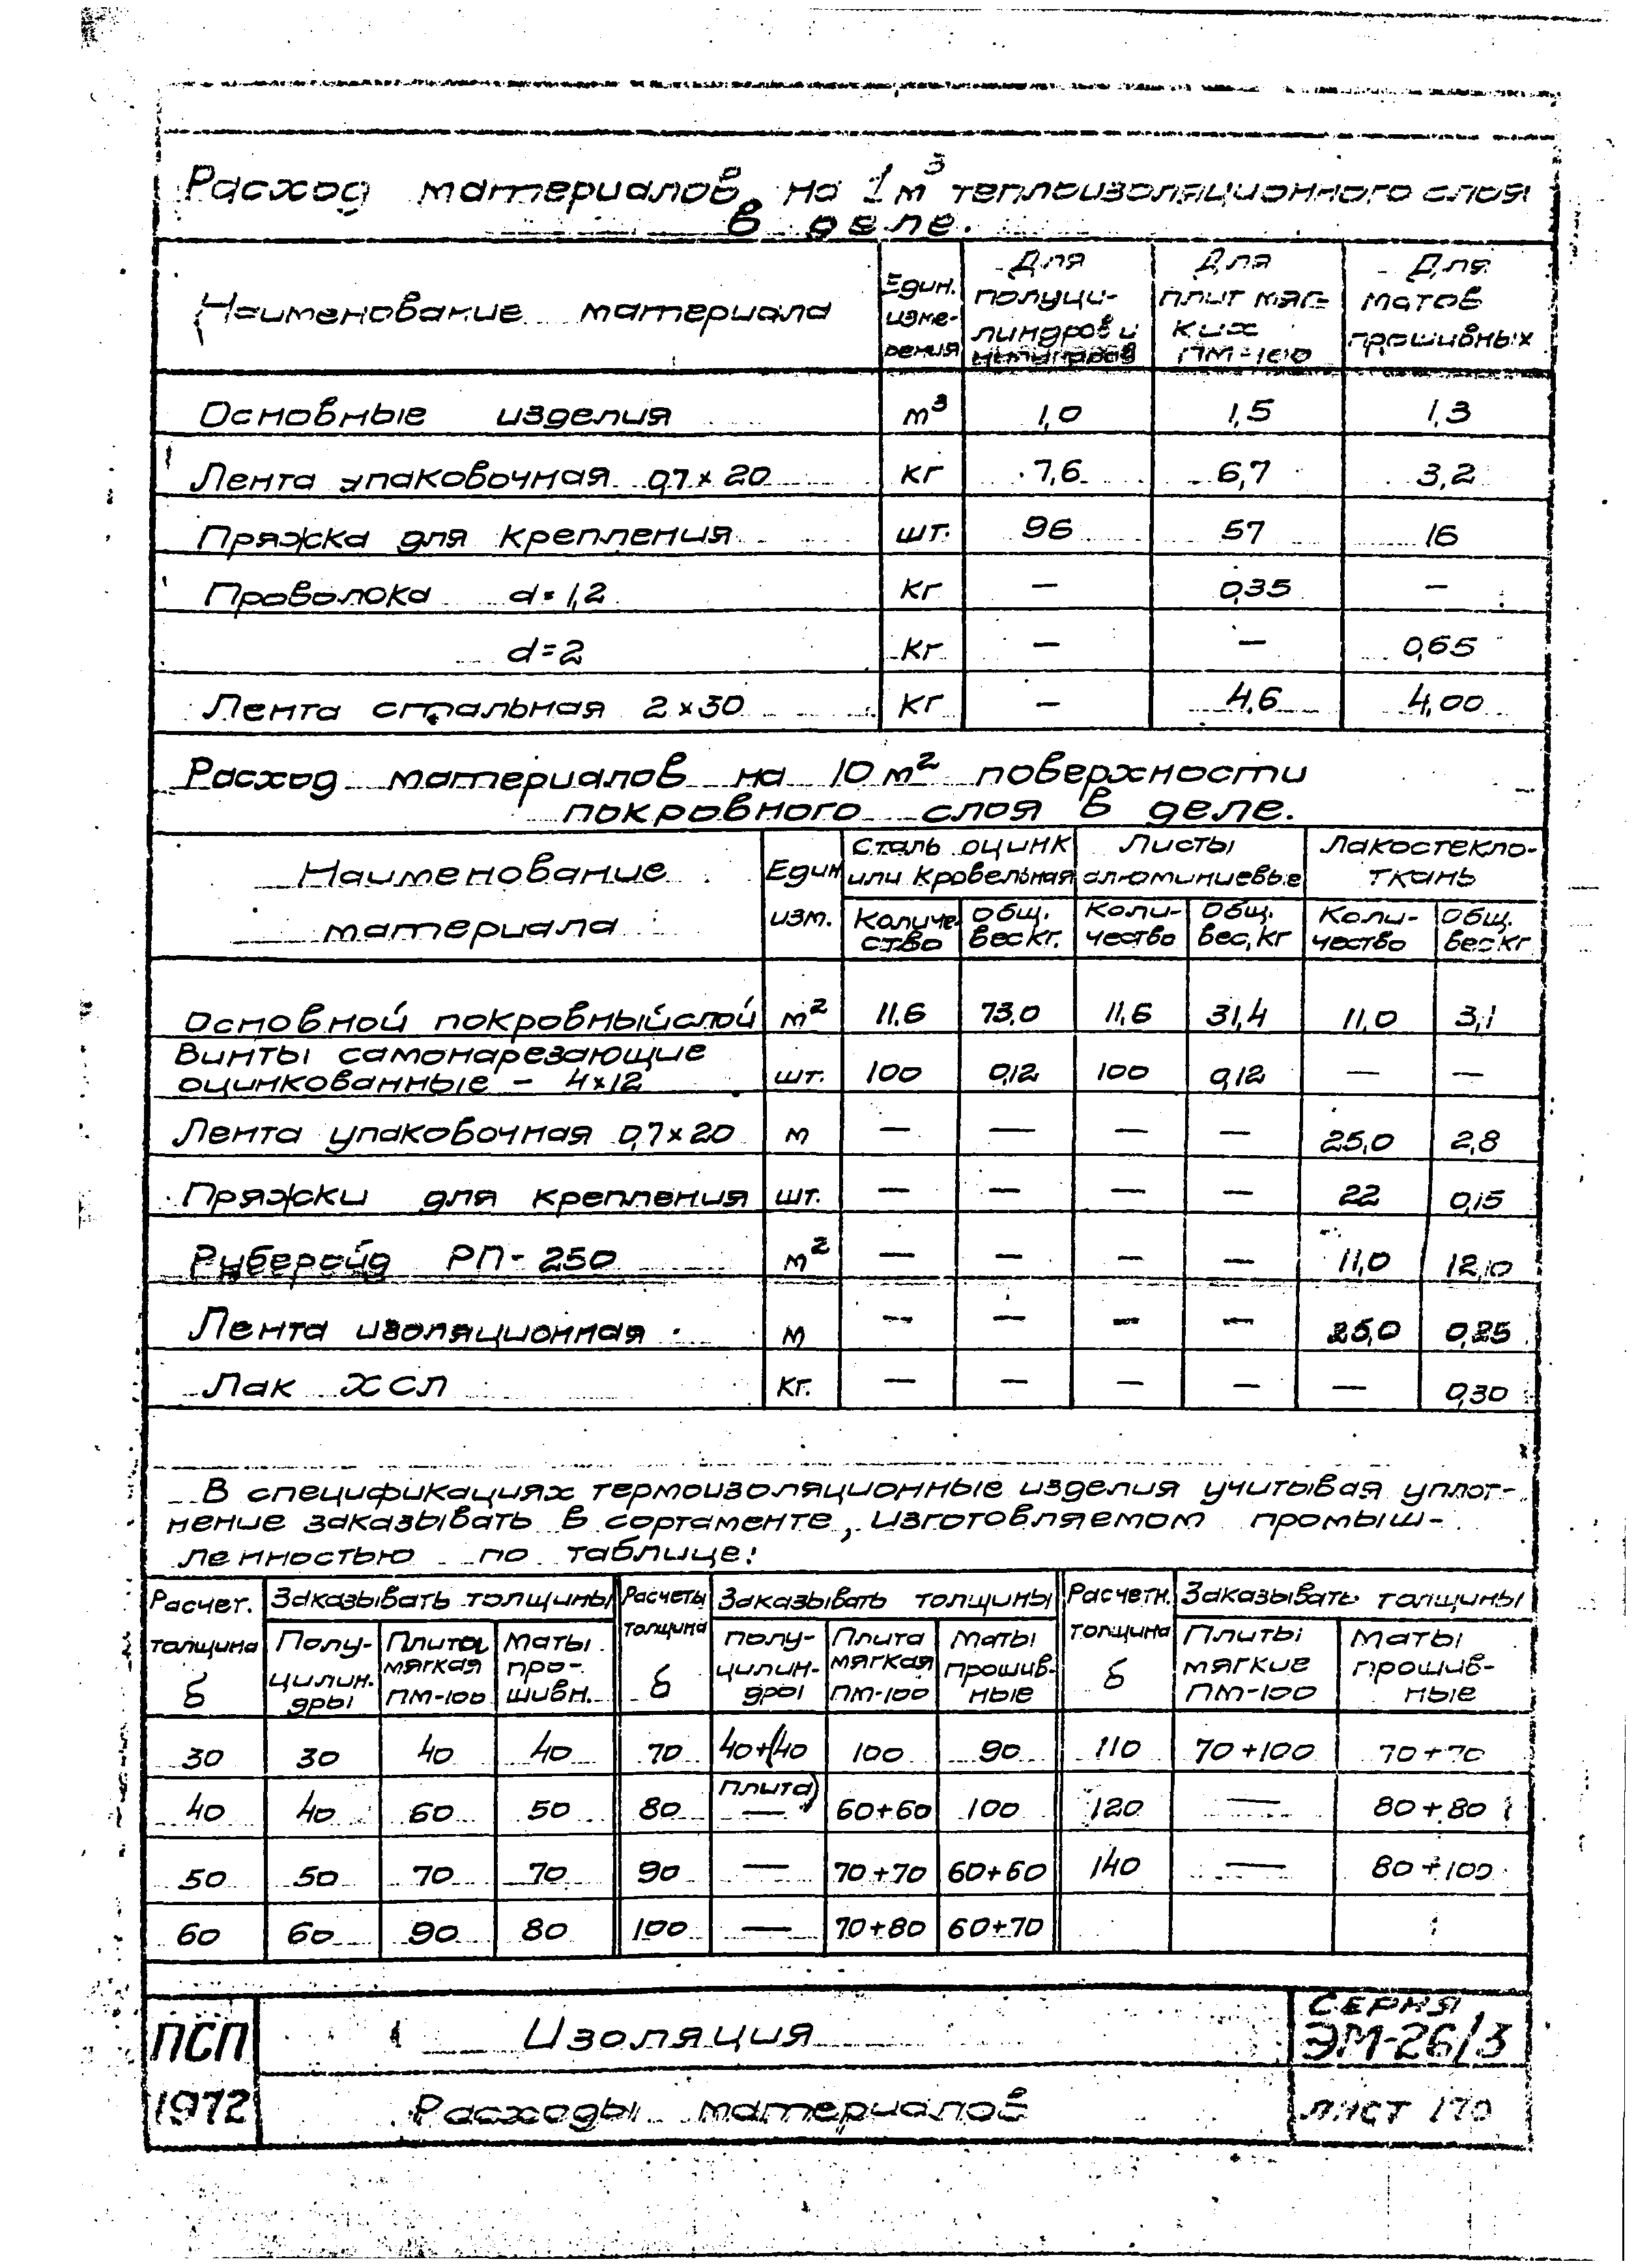 Расход материалов на 1 м³ теплоизоляционного слоя
в деле.
Наименование материала | Един. изме- рения | Для полуци- линдров и цилиндров | Для плит мяг- ких ПМ-100 | Для матов прошивных
Основные изделия | м³ | 1,0 | 1,5 | 1,3
Лента упаковочная 0,7×20 | кг | 7,6 | 6,7 | 3,2
Пряжка для крепления | шт. | 96 | 57 | 16
Проволока d=1,2 | кг | — | 0,35 | —
d=2 | кг | — | — | 0,65
Лента стальная 2×30 | кг | — | 4,6 | 4,00
Расход материалов на 10 м² поверхности
покровного слоя в деле.
Наименование материала | Един изм. | Сталь оцинк или кровельная | Листы алюминиевые | Лакостекло- ткань
Количе- ство | Общ. вес кг. | Коли- чество | Общ. вес, кг | Коли- чество | Общ. вес кг
Основной покровный слой | м² | 11,6 | 73,0 | 11,6 | 31,4 | 11,0 | 3,1
Винты самонарезающие
оцинкованные - 4×12 | шт. | 100 | 0,12 | 100 | 0,12 | — | —
Лента упаковочная 0,7×20 | м | — | — | — | — | 25,0 | 2,8
Пряжки для крепления | шт. | — | — | — | — | 22 | 0,15
Рубероид РП-250 | м² | — | — | — | — | 11,0 | 12,10
Лента изоляционная | м | — | — | — | — | 25,0 | 0,25
Лак ХСЛ | кг. | — | — | — | — | — | 0,30
В спецификациях термоизоляционные изделия учитывая уплот-
нение заказывать в сортаменте, изготовляемом промыш-
ленностью по таблице:
Расчет. толщина б | Заказывать толщины | Расчеты толщина б | Заказывать толщины | Расчетн. толщина б | Заказывать толщины
Полу- цилин. дры | Плита мягкая ПМ-100 | Маты про- шивн. | Полу- цилин- дры | Плита мягкая ПМ-100 | Маты прошив- ные | Плиты мягкие ПМ-100 | Маты прошив- ные
30 | 30 | 40 | 40 | 70 | 40+(40 плита) | 100 | 90 | 110 | 70+100 | 70+70
40 | 40 | 60 | 50 | 80 | — | 60+60 | 100 | 120 | — | 80+80
50 | 50 | 70 | 70 | 90 | — | 70+70 | 60+60 | 140 | — | 80+100
60 | 60 | 90 | 80 | 100 | — | 70+80 | 60+70
ПСП
1972
Изоляция
Расходы материалов
СЕРИЯ
ЭМ-26/3
ЛИСТ 170